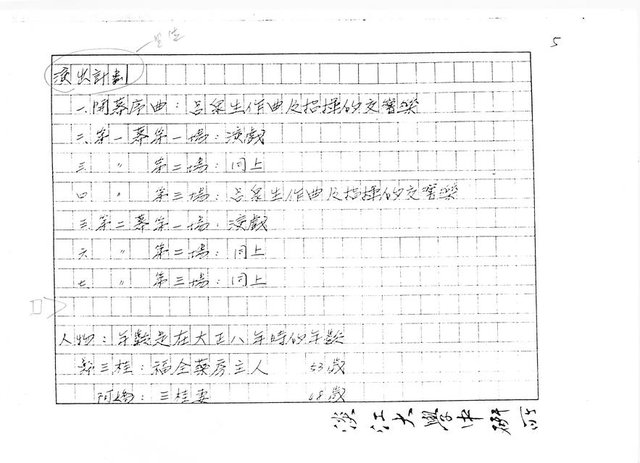 5
演出計劃
一.開幕序曲：呂泉生作曲及指揮的交響樂
二.第一幕第一場：演戲
三 〃 第二場：同上
四 〃 第三場：呂泉生作曲及指揮的交響樂
五.第二幕第一場：演戲
六 〃 第二場：同上
七 〃 第三場：同上
人物：年數是在大正八年時的年數
鄭三桂：福全藥房主人 53歲
三桂妻 48歲
淡江大學中研所